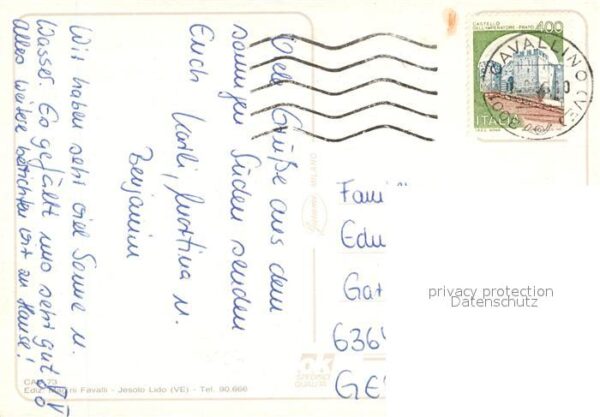 Viele Grüße aus dem
sonnigen Süden senden
Euch
Karli, Martina u.
Benjamin
Wir haben sehr viel Sonne u.
Wasser. Es gefällt uns sehr gut
alles weitere berichten wir zu Hause!
Edu
636
GE
CASTELLO
DELL'IMPERATORE - PRATO
400
ITALIA
CAVALLINO (VE)
MILANO
privacy protection
Datenschutz
Favalli - Jesolo Lido (VE) - Tel. 90.666